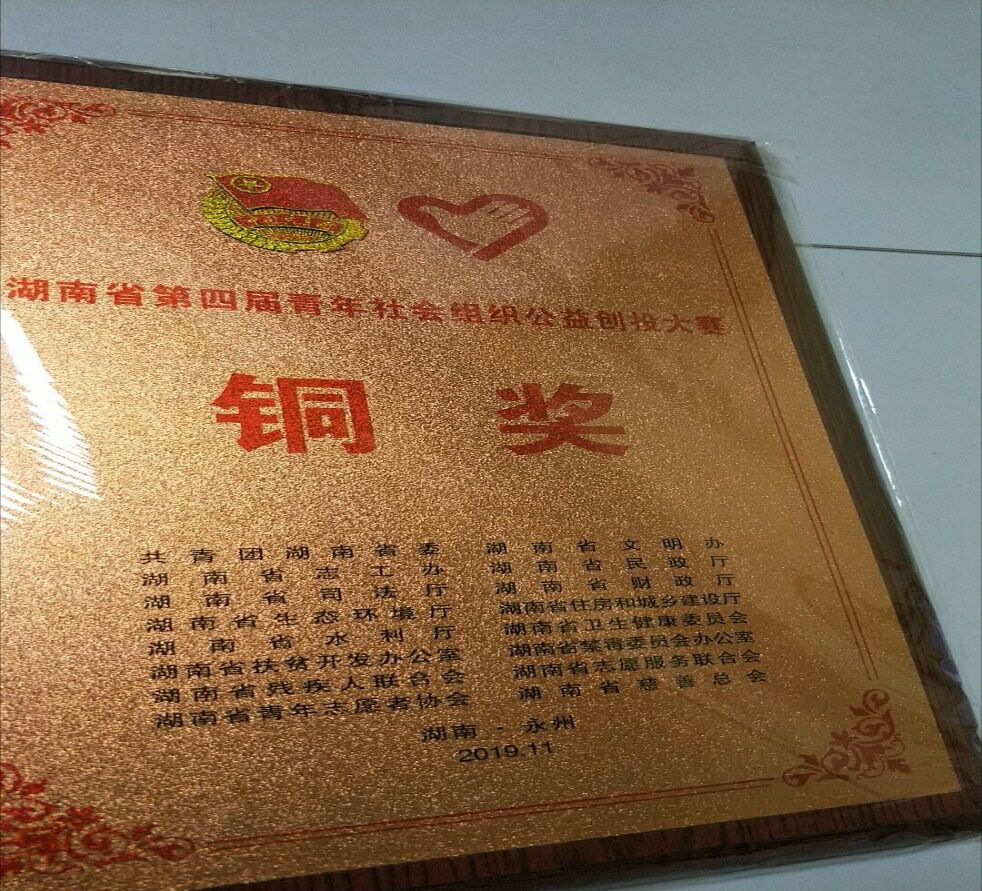 湖南省第四届青年社会组织公益创投大赛
铜 奖
共青团湖南省委 湖南省文明办
湖南省志工办 湖南省民政厅
湖南省司法厅 湖南省财政厅
湖南省生态环境厅 湖南省住房和城乡建设厅
湖南省水利厅 湖南省卫生健康委员会
湖南省扶贫开发办公室 湖南省禁毒委员会办公室
湖南省残疾人联合会 湖南省志愿服务联合会
湖南省青年志愿者协会 湖南省慈善总会
湖南 - 永州
2019.11